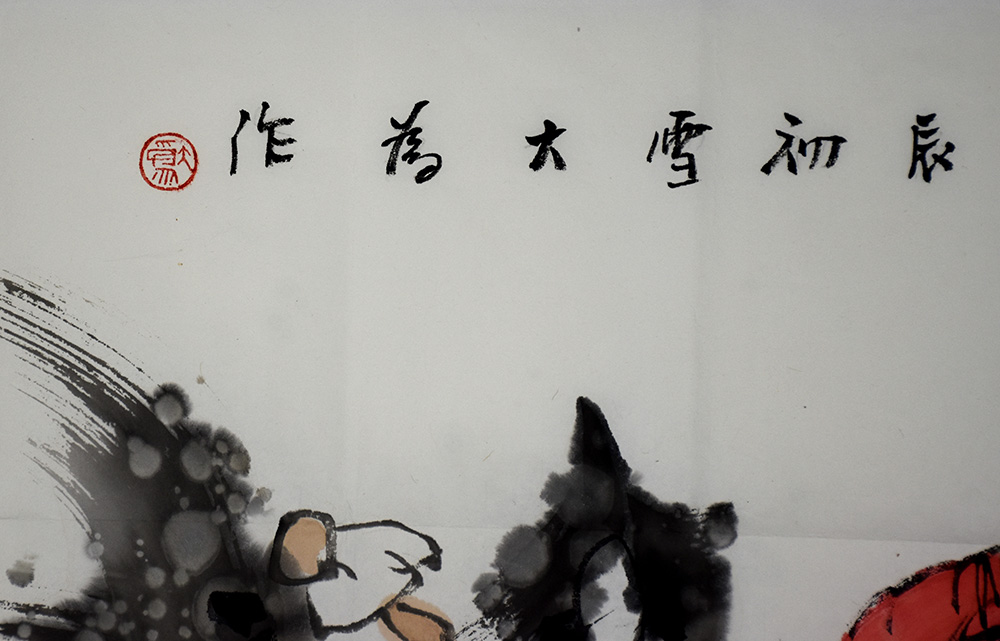 辰初雪大為作